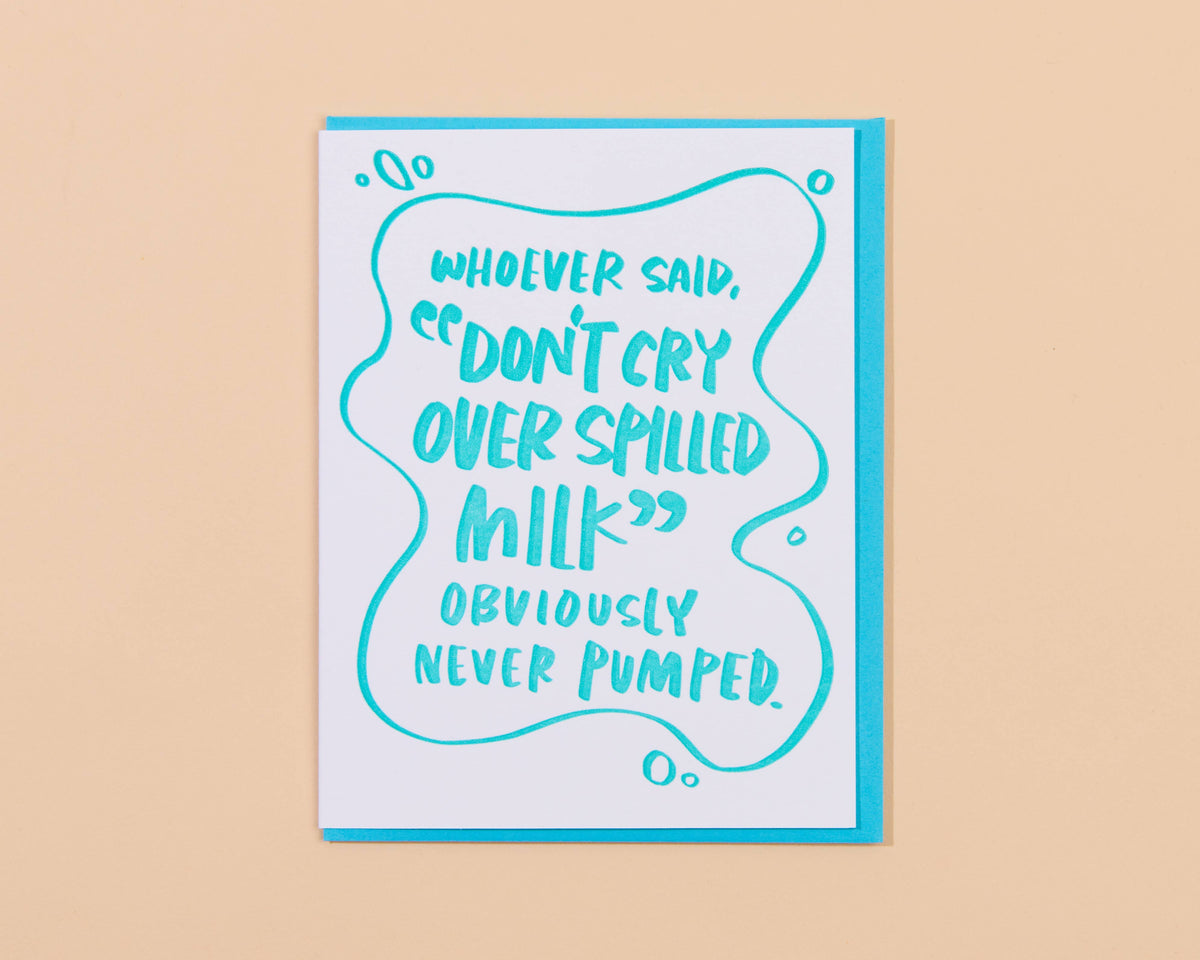 WHOEVER SAID,
“DON'T CRY
OVER SPILLED
MILK”
OBVIOUSLY
NEVER PUMPED.